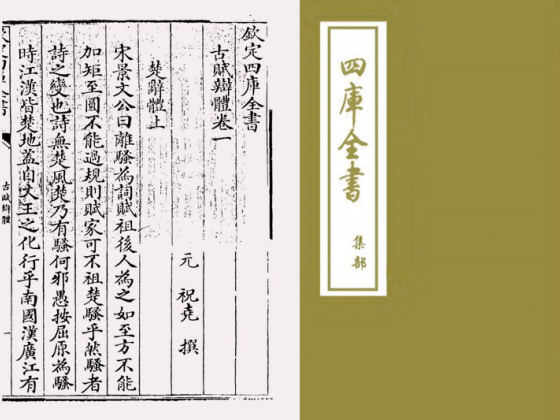 欽定四庫全書
古賦辯體卷一
元 祝堯 撰
楚辭體上
宋景文公曰離騷為詞賦祖後人為之如至方不能
加矩至圓不能過規則賦家可不祖楚騷乎然騷者
詩之變也詩無楚風楚乃有騷何邪愚按屈原為騷
時江漢皆楚地蓋自文王之化行乎南國漢廣江有
古賦辯體
四庫全書
集部